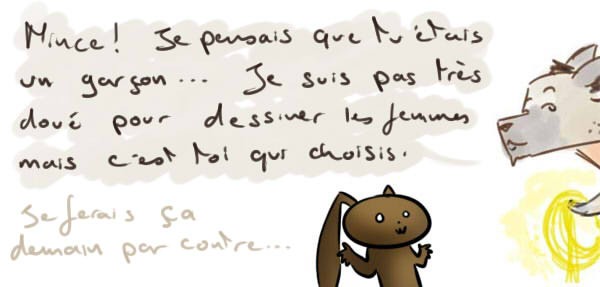 Mince! Je pensais que tu étais
un garçon... Je suis pas très
doué pour dessiner les femmes
mais c'est toi qui choisis.
Je ferais ça
demain par contre...